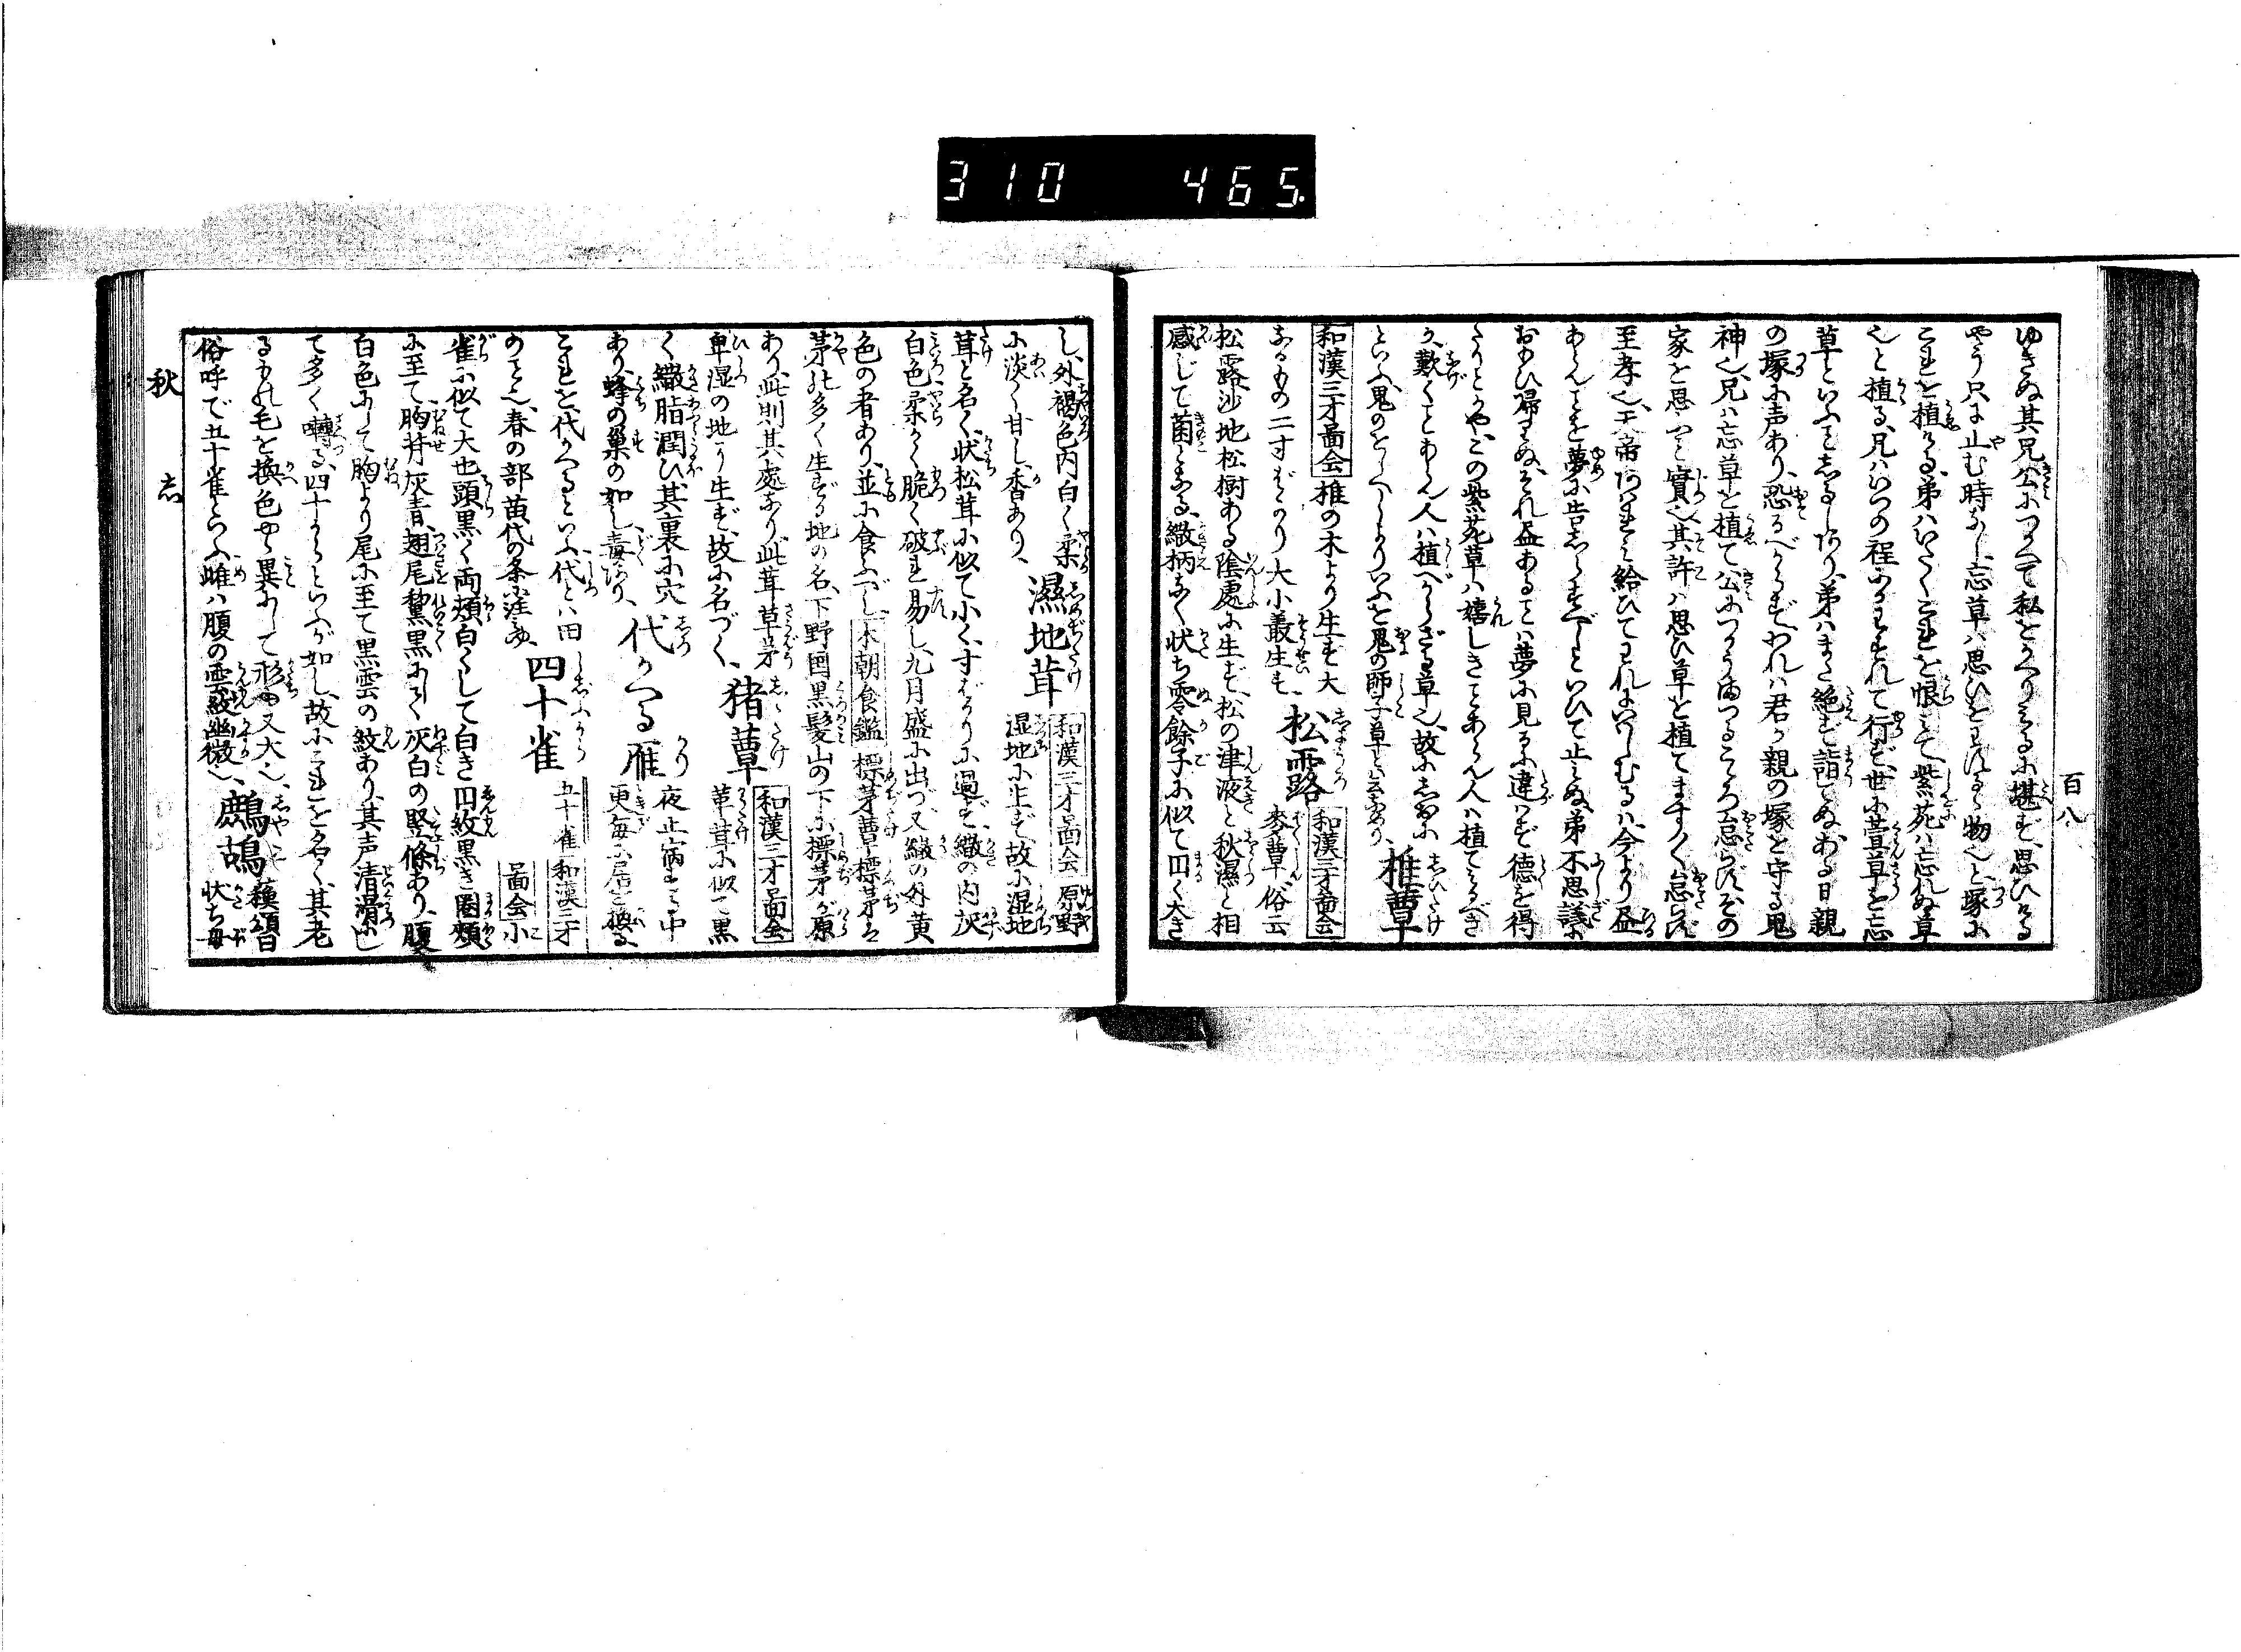 310 465.
百八
ゆきぬ其兄公につかへて私をかへりみるに堪ず思ひける
やう只に止む時なし、忘草ハ思ひをわするゝ物也と塚に
これを植ける、弟ハいたくこれを恨みて、紫苑ハ忘れぬ草
也と植る、兄ハいつの程にかわすれて行ず、世に萱草を忘
草といふことしるしあり、弟ハまた絶ず詣でぬ、ある日親
の塚に声あり、恐るべからず、われハ君が親の塚を守る鬼
神也、兄ハ忘草を植て公につかうまつるこころ忘らず、その
家を思へり實也、其許ハ思ひ草を植てますく忘らず
至孝也、天帝
あらんことを夢に告しらすべしといひて止みぬ、弟不思議に
おもひ帰りぬ、それ昼あることハ夜夢に見るに違ハず徳を得
たりとかや、この紫苑草ハ嬉しきことあらん人ハ植てみるべき
又歎くことあらん人ハ植べからざる草也、故にしおに
といふ、鬼のをしへしよりいふを鬼の師子草とも云なり、椎蕈
和漢三才圖会 椎の木より生ず大
なるもの二寸ばかり大小叢生す、松露 和漢三才圖会 麥蕈俗云
松露沙地松樹ある陰處に生ず、松の津液と秋濕と相
感じて菌となる、繖柄なく状ち零餘子に似て円く大き
し、外褐色内白く柔 濕地茸 和漢三才圖会 原野
湿地に生ず、故に湿地
に淡く甘し、香あり、
茸と名く、状松茸に似て小く、寸ばかりに過ず、繖の内灰
白色柔かく脆く破れ易し、九月盛に出づ、又繖の外黄
色の者あり、並に食ふべし、本朝食鑑 標茅蕈標茅は
茅の多く生ずる地の名、下野国黒髪山の下に標茅が原
あり、此則其處なり、此茸草茅 猪蕈 和漢三才圖会 革茸に似て黒
卑湿の地に生ず、故に名づく、
く繖脂潤ひ、其裏に穴
あり、蜂の巣の如し、毒あり、代かへる雁 夜止宿する中
更毎に居を換る
これを代かへるといふ、代とハ田
のこと也、春の部苗代の条に注す、四十雀 五十雀 和漢三才圖会 小
雀に似て大也、頭黒く両頬白くして白き円紋黒き圏頬
に至て、胸背灰青、翅尾黧黒にして灰白の竪條あり、腹
白色にして胸より尾に至て黒雲の紋あり、其声清滑に
て多く囀る、四十からといふが如し、故にこれを名く、其老
るもの毛を換色やゝ異にして形も又大也、
俗呼で五十雀といふ、雌ハ腹の雲紋幽微也、鷓鴣 蘇頌曰状ち母
秋 志